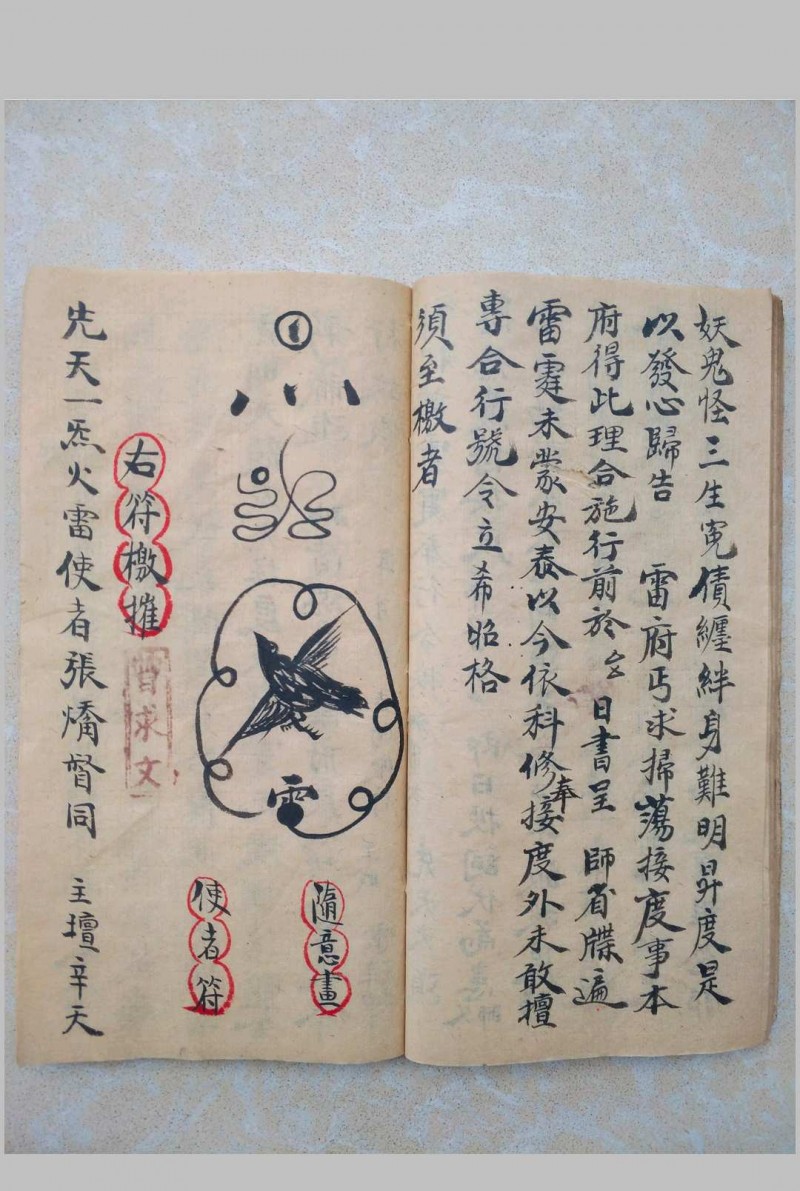 妖鬼怪三生冤債纏絆身難明昇度是
以發心歸告　雷府丐求掃蕩接度事本
府得此理合施行前於厶日書呈　師省牒遍
雷霆未蒙安泰以今依科修奉接度外未敢擅
專合行號令立希昭格
須至檄者
隨意畫
使者符
雷
右符檄摧
百求文
先天一炁火雷使者張燏督同　主壇辛天